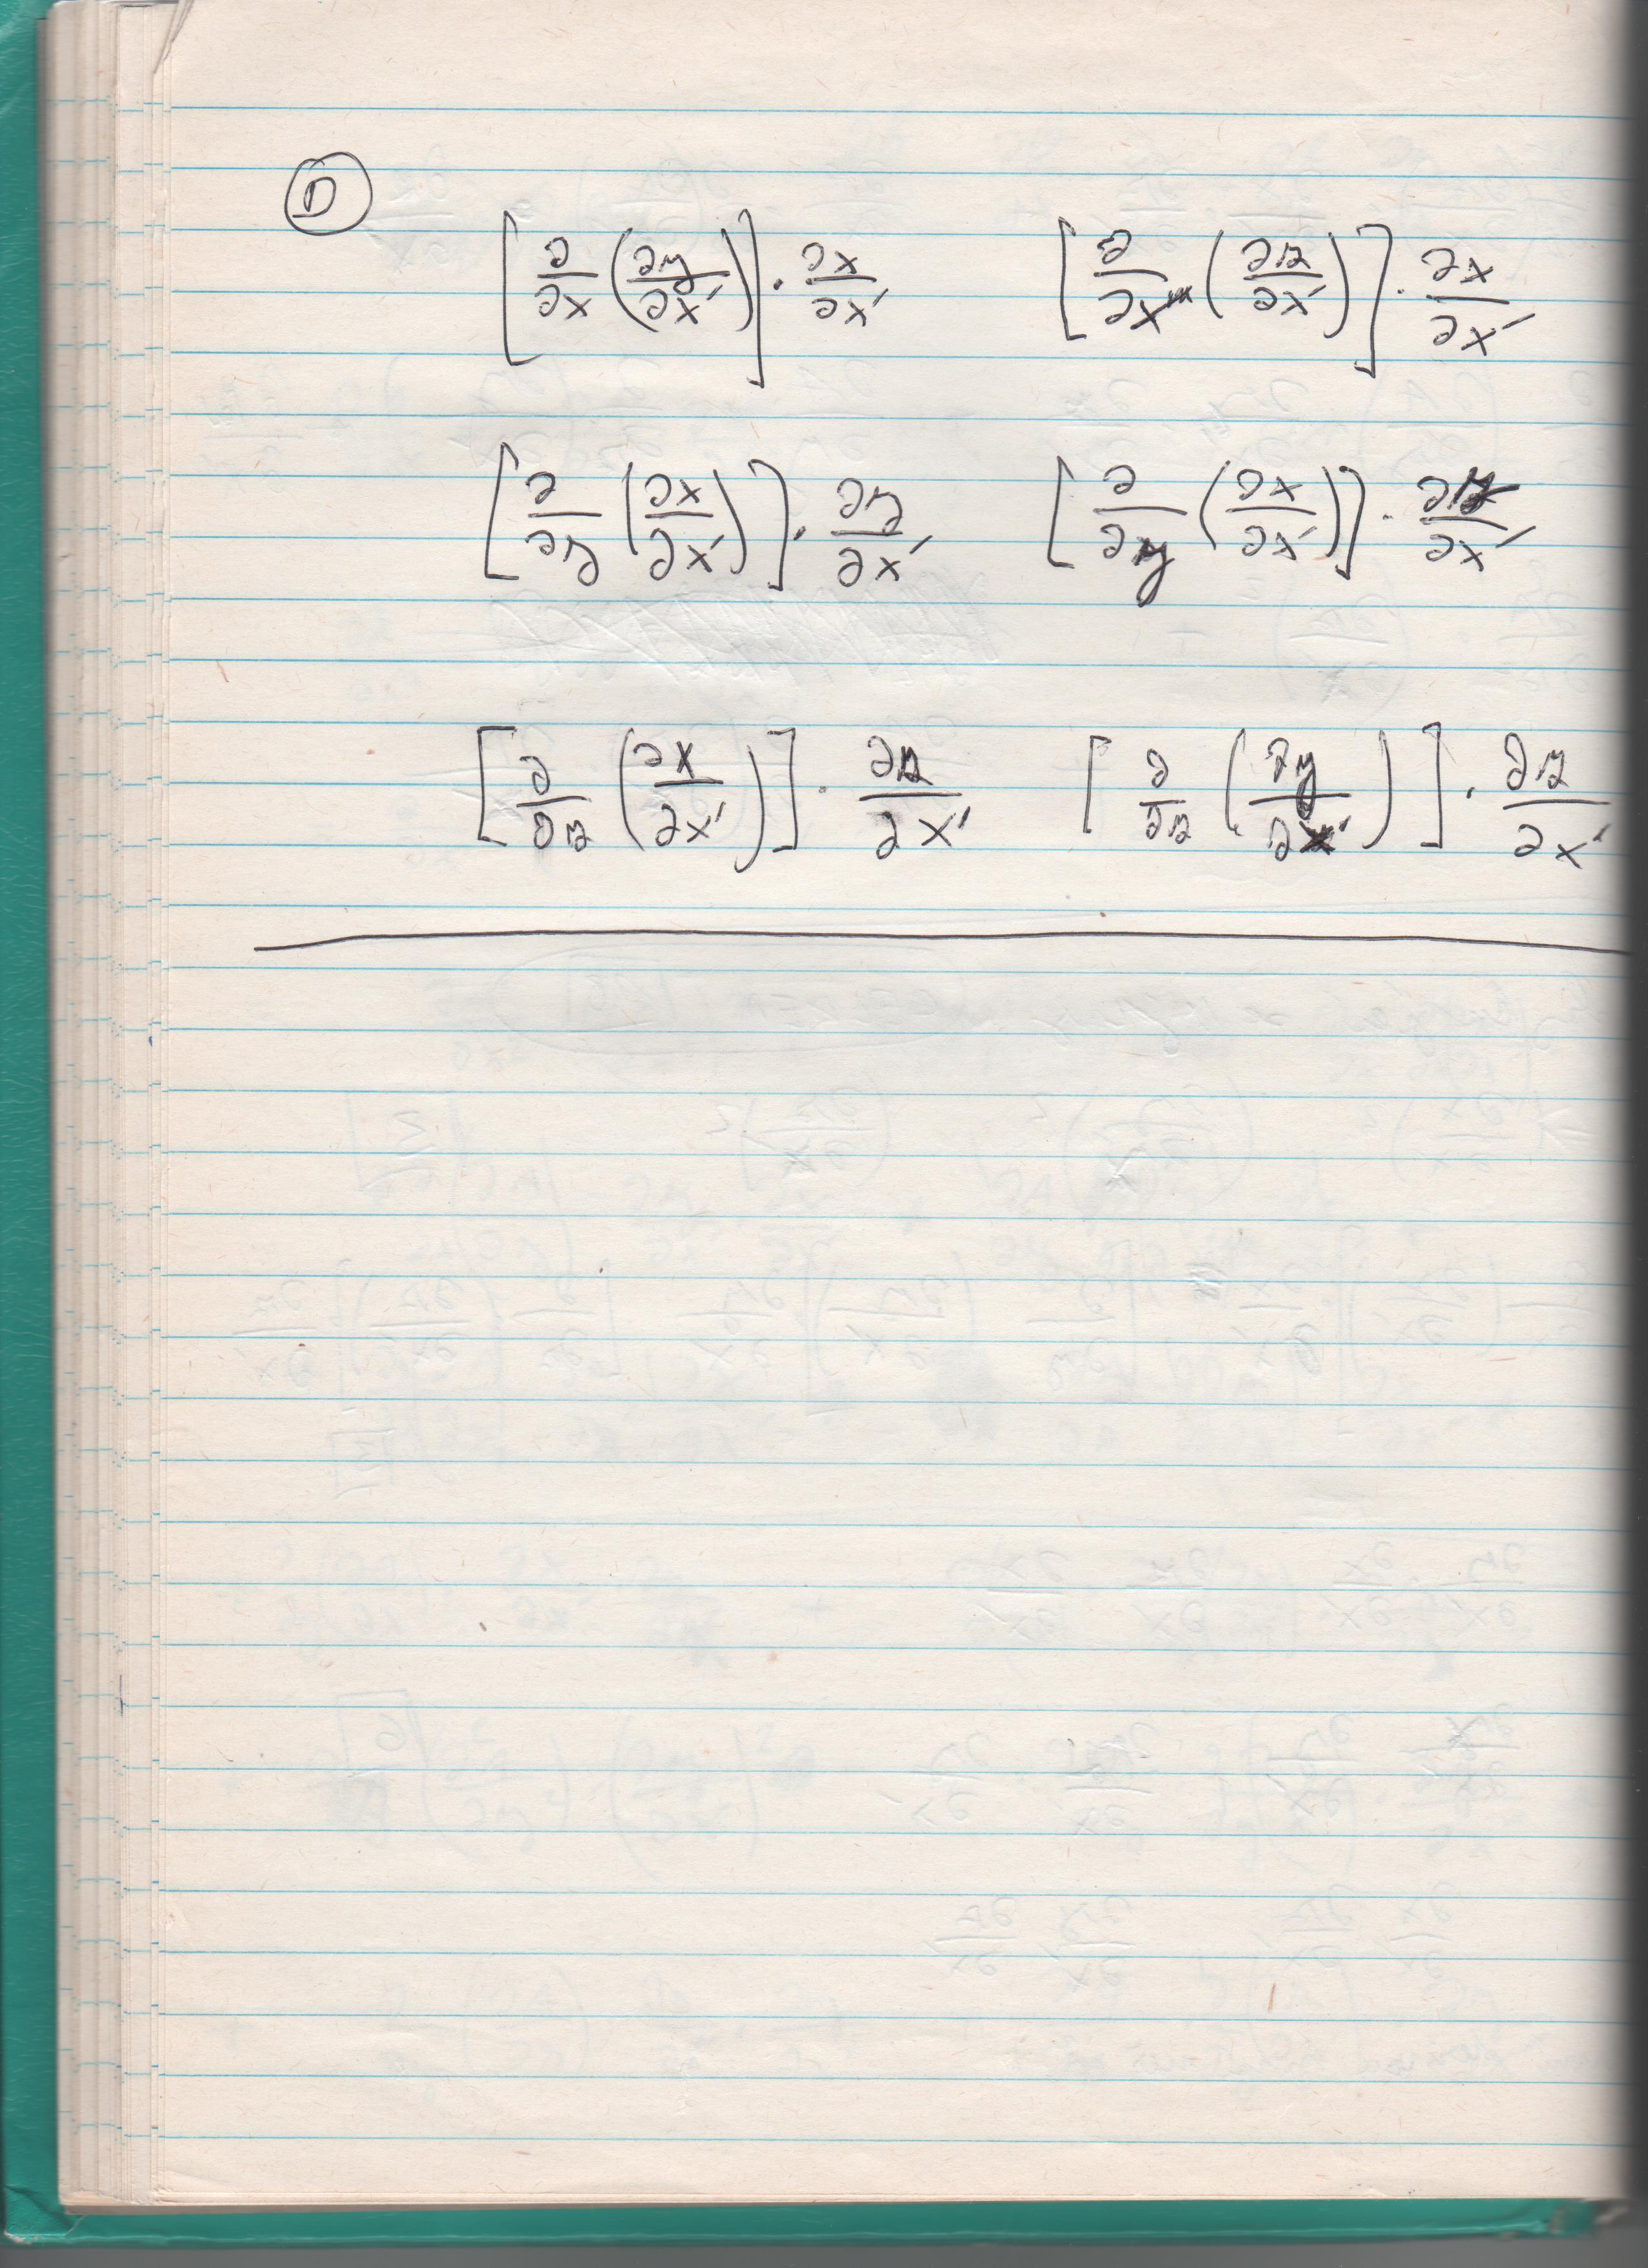 Ⓓ
[∂/∂x (∂y/∂x′)] · ∂x/∂x′   [∂/∂x (∂z/∂x′)] · ∂x/∂x′
[∂/∂y (∂x/∂x′)] · ∂y/∂x′   [∂/∂y (∂x/∂x′)] ·
[∂/∂z (∂x/∂x′)] · ∂z/∂x′   [∂/∂z (∂y/∂x′)] · ∂z/∂x′